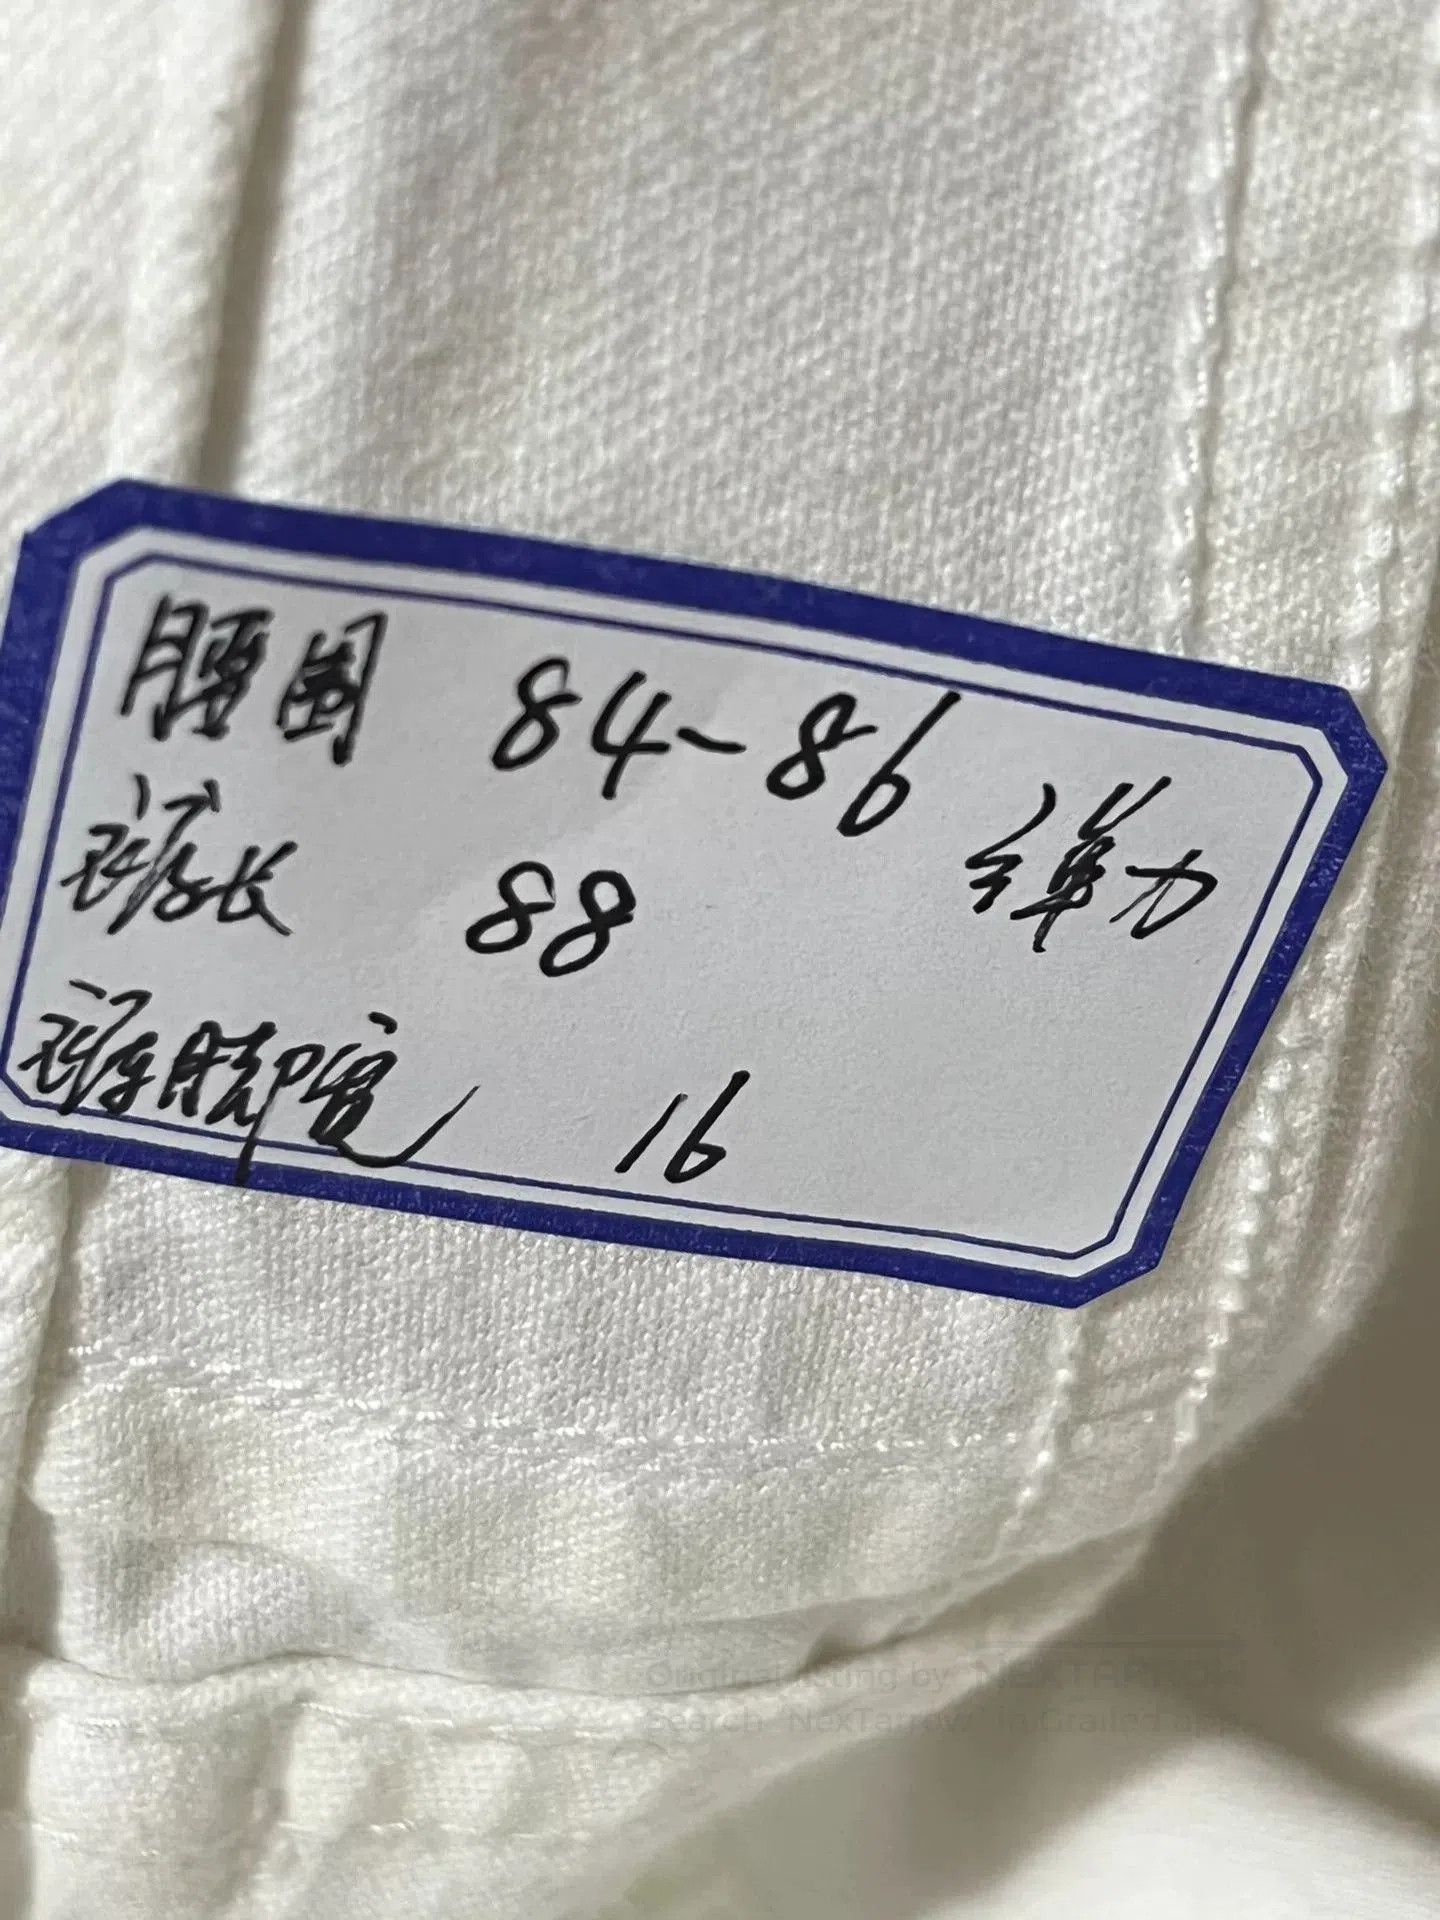 腰围 84-86 弹力
裤长 88
裤脚宽 16
Original listing by NEXTARROW
Search "NexTarrow" in Grailed app